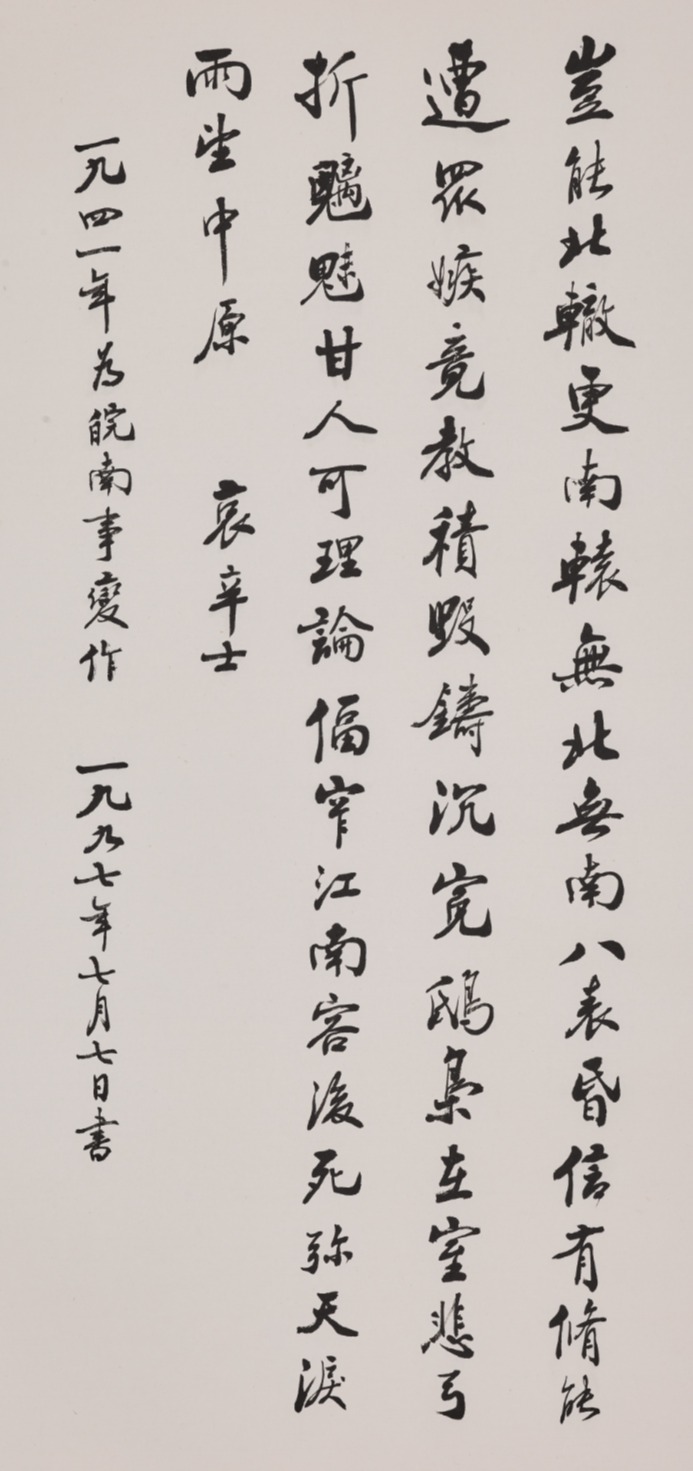 豈能北轍更南轅無北無南八表昏信有脩能
遭眾嫉竟教積毀鑄沉冤鴟梟在室悲弓
折魑魅甘人可理論偪窄江南容後死弥天淚
雨望中原 哀辛士
一九四一年为皖南事變作 一九九七年七月七日書